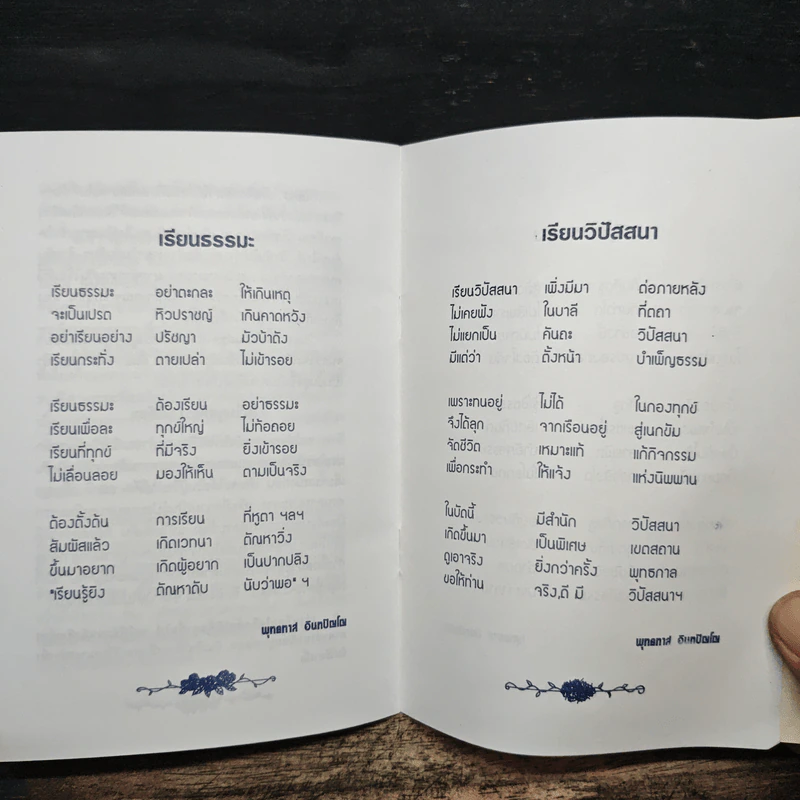 เรียนธรรมะ
เรียนธรรมะ อย่าตะกละ ให้เกินเหตุ
จะเป็นเปรต หิวปราชญ์ เกินคาดหวัง
อย่าเรียนอย่าง ปรัชญา มัวบ้าดัง
เรียนกระทั่ง ตายเปล่า ไม่เข้ารอย
เรียนธรรมะ ต้องเรียน อย่างธรรมะ
เรียนเพื่อละ ทุกข์ใหญ่ ไม่ท้อถอย
เรียนที่ทุกข์ ที่มีจริง ยิ่งเข้ารอย
ไม่เลื่อนลอย มองให้เห็น ตามเป็นจริง
ต้องตั้งต้น การเรียน ที่หูตา ฯลฯ
สัมผัสแล้ว เกิดเวทนา ตัณหาวิ่ง
ขึ้นมาอยาก เกิดผู้อยาก เป็นปากปลิง
"เรียนรู้ยิง ตัณหาดับ นับว่าพอ" ฯ
พุทธทาส อินทปัญโญ
เรียนวิปัสสนา
เรียนวิปัสสนา เพิ่งมีมา ต่อภายหลัง
ไม่เคยฟัง ในบาลี ที่ตถา
ไม่แยกเป็น คันถะ วิปัสสนา
มีแต่ว่า ตั้งหน้า บำเพ็ญธรรม
เพราะทนอยู่ ไม่ได้ ในกองทุกข์
จึงได้ลุก จากเรือนอยู่ สู่เนกขัม
จัดชีวิต เหมาะแท้ แก้กิจกรรม
เพื่อกระทำ ให้แจ้ง แห่งนิพพาน
ในบัดนี้ มีสำนัก วิปัสสนา
เกิดขึ้นมา เป็นพิเศษ เขตสถาน
ดูเอาจริง ยิ่งกว่าครั้ง พุทธกาล
ขอให้ท่าน จริง,ดี มี วิปัสสนาฯ
พุทธทาส อินทปัญโญ